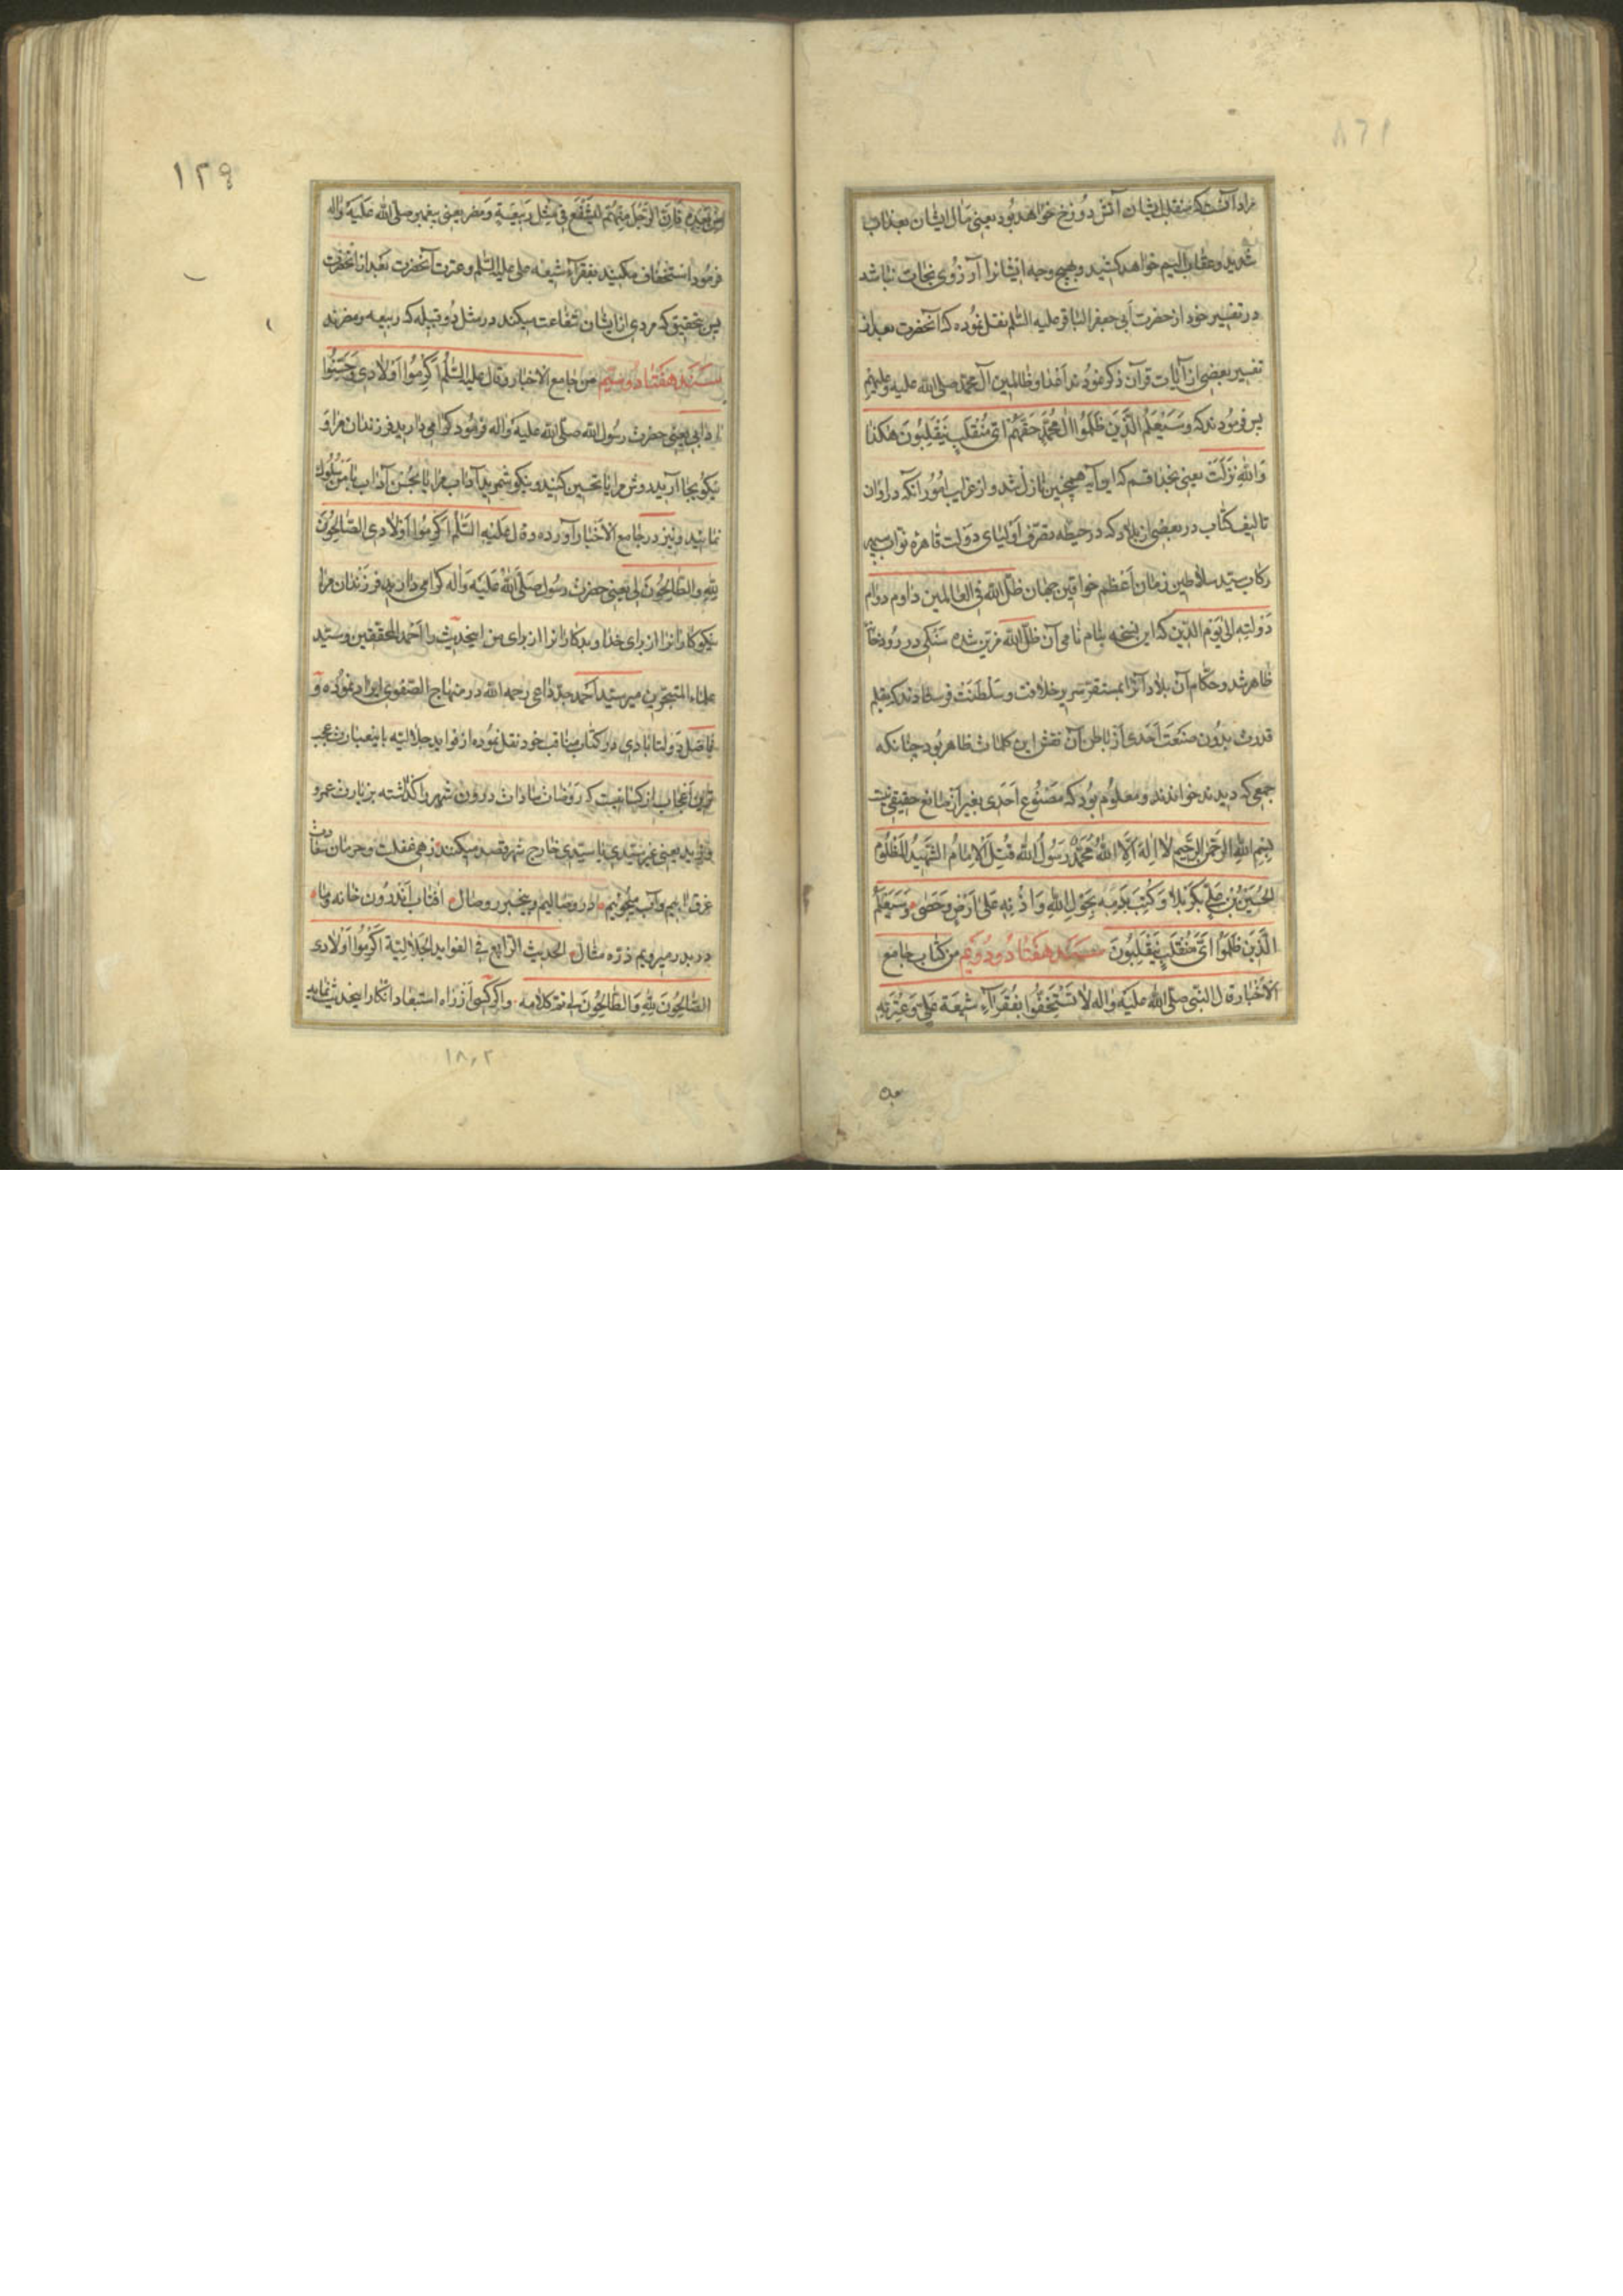 مراد آنست که منقلب ایشان آتش دوزخ خواهد بود یعنی مآل ایشان بعذاب
شدید و عقاب الیم خواهد کشید و بهیچ وجه ایشانرا آرزوی نجات نباشد
در تفسیر خود از حضرت أبی جعفر الباقر علیه السّلم نقل نموده که آنحضرت بعد از
تفسیر بعضی از آیات قرآن ذکر نمودند اعدا و ظالمین آل محمّد صلی الله علیه و علیهم
پس فرمودند که وَسَیَعْلَمُ الَّذِینَ ظَلَمُوا اٰلَ مُحَمَّدٍ حَقَّهُمْ اَیَّ مُنْقَلَبٍ یَنْقَلِبُونَ هٰکَذٰا
وَاللّٰهِ نَزَلَتْ یعنی بخدا قسم که این آیه همچنین نازل شد و از غرایب امور آنکه در اوان
تالیف کتاب در بعضی از بلاد که در حیطه تصرّف اولیای دولت قاهره نواب سپهر
رکاب سیّد سلاطین زمان اعظم خواقین جهان ظلّ الله فی العالمین داوم دوام
دولته الی یوم الدّین که این نسخه بنام نامی آن ظلّ الله مزیّن شده سنکی در رودخانه
ظاهر شد و حکّام آن بلاد آنرا بمستقرّ سریر خلافت و سلطنت فرستادند که بقلم
قدرت بدون صنعت احدی از باطن آن نقش این کلمات ظاهر بود چنانکه
جمعی که دیدند خواندند و معلوم بود که مصنوع احدی بغیر از صانع حقیقی نیست
بِسْمِ اللّٰهِ الرَّحْمٰنِ الرَّحِیمِ لٰا اِلٰهَ اِلَّا اللّٰهُ مُحَمَّدٌ رَسُولُ اللّٰهِ قُتِلَ الْاِمٰامُ الشَّهِیدُ الْمَظْلُومُ
الْحُسَیْنُ بْنُ عَلِیٍّ بِکَرْبَلٰا وَ کُتِبَ بِدَمِهِ بِحَوْلِ اللّٰهِ وَ اِذْنِهِ عَلٰی اَرْضٍ وَ حَصٰی وَ سَیَعْلَمُ
الَّذِینَ ظَلَمُوا اَیَّ مُنْقَلَبٍ یَنْقَلِبُونَ سند هفتاد و دویم من کتاب جامع
الْاَخْبار قال النبی صلّی اللّٰه علیه وٰاله لٰا تَسْتَخِفُّوا بِفُقَرٰآءِ شیعَةِ عَلِیٍّ وَ عِتْرَتِهِ
١٢٩
مِنْ بَعْدِهِ فَاِنَّ الرَّجُلَ مِنْهُمْ لَیَشْفَعُ فی مِثْلِ رَبِیعَةٍ وَ مُضَر یعنی پیغمبر صلّی الله علیه واله
فرمود استخفاف مکنید بفقرآء شیعه علی علیه السّلم و عترت آنحضرت بعد از آنحضرت
پس بتحقیق که مردی از ایشان شفاعت میکند در مثل دو قبیله که ربیعه و مضرند
سند هفتاد و سیم من جامع الاخبار و قال علیه السّلم اَکْرِمُوا اَوْلٰادی وَ حَسِّنُوا
اٰدٰابی یعنی حضرت رسول الله صلّی الله علیه واله فرمود کرامی دارید فرزندان مرا و
نیکو بجا آرید روش مرا یا تحسین کنید و نیکو شمرید آداب مرا یا بحسن آداب با من سلوک
نمایید و نیز در جامع الاخبار آورده و قال علیه السّلم اَکْرِمُوا اَوْلٰادی الصّٰالِحُونَ
لِلّٰهِ وَ الطّٰالِحُونَ لِی یعنی حضرت رسول صلّی اللّٰه علیه وٰاله کرامی دارید فرزندان مرا
نیکوکارانرا از برای خدا و بدکارانرا از برای من اینحدیث را احمد المحققین و سیّد
علماء المتبحّرین میر سیّد احمد جدّ داعی رحمه الله در منهاج الصّفوی ایراد نموده و
فاضل دولتابادی در کتاب مناقب خود نقل نموده از فواید جلالیّه باینعبارت عجب
تمام اعجاب از کسانیست که روضات سادات درون شهر را کذاشته بزیارت عمرو
و زید یعنی غیر سیّدی یا سیّدی خارج شهر قصد میکنند زهی غفلت و حرمان سعادت
غرق آبیم و آب میجوییم در وصالیم و بیخبر ز وصال آفتاب اندرون خانه و ما
در بدر میرویم ذرّه مثال الحدیث الرّابع فی الفواید الجلالیّة اکرموا اولادی
الصّٰالِحُونَ لِلّٰهِ وَ الطّٰالِحُونَ لی تم کلامه و اکر کسی از راه استبعاد انکار اینحدیث نماید